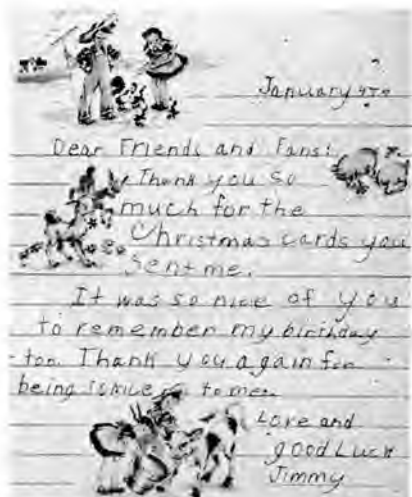 January 9th
Dear Friends and Fans:
Thank you so
much for the
Christmas cards you
Sent me.
It was so nice of you
to remember my birthday
too. Thank you again for
being to me.
Love and
good Luck
Jimmy